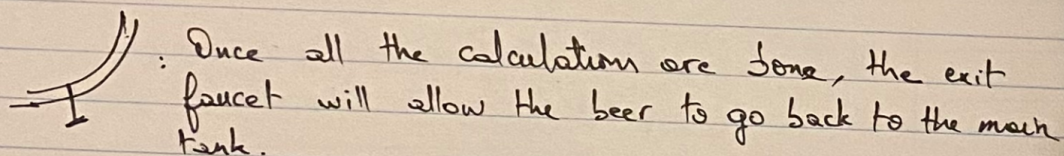 : Once all the calculation are done, the exit
faucet will allow the beer to go back to the main
tank.